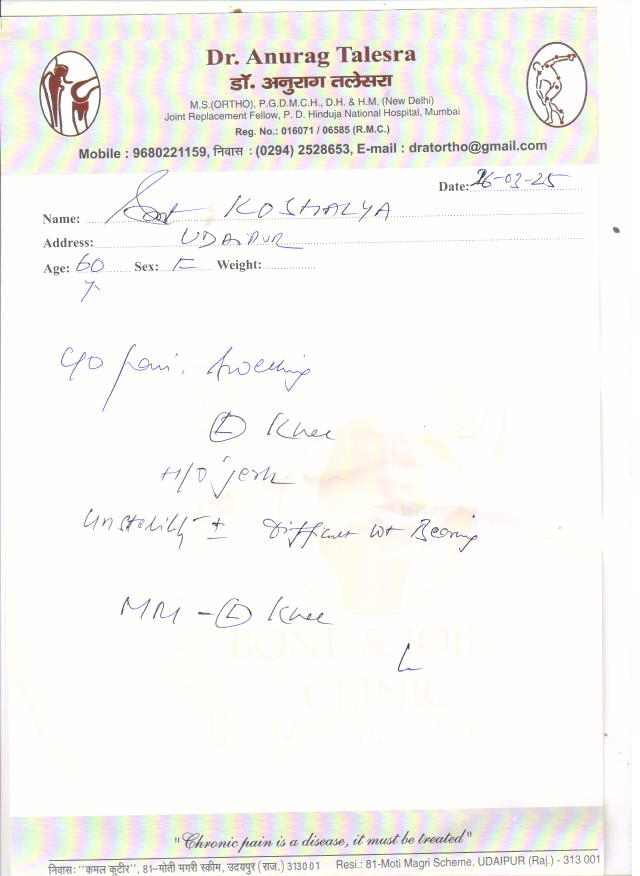 Dr. Anurag Talesra
डॉ. अनुराग तलेसरा
M.S.(ORTHO), P.G.D.M.C.H., D.H. & H.M. (New Delhi)
Joint Replacement Fellow, P. D. Hinduja National Hospital, Mumbai
Reg. No.: 016071 / 06585 (R.M.C.)
Mobile : 9680221159, निवास : (0294) 2528653, E-mail : dratortho@gmail.com
Date: 26-03-25
Name: KOSHALYA
Address: UDAIPUR
Age: 60 Sex: F Weight:
Y
C/O Pain, Swelling
Ⓛ Knee
H/O jerk
Unstability ± Difficult Wt Bearing
MRI - Ⓛ Knee
BONE & JOIN
CLINIC
"Chronic pain is a disease, it must be treated"
निवास: "कमल कुटीर", 81-मोती मगरी स्कीम, उदयपुर (राज.) 313001 Resi.: 81-Moti Magri Scheme, UDAIPUR (Raj.) - 313 001